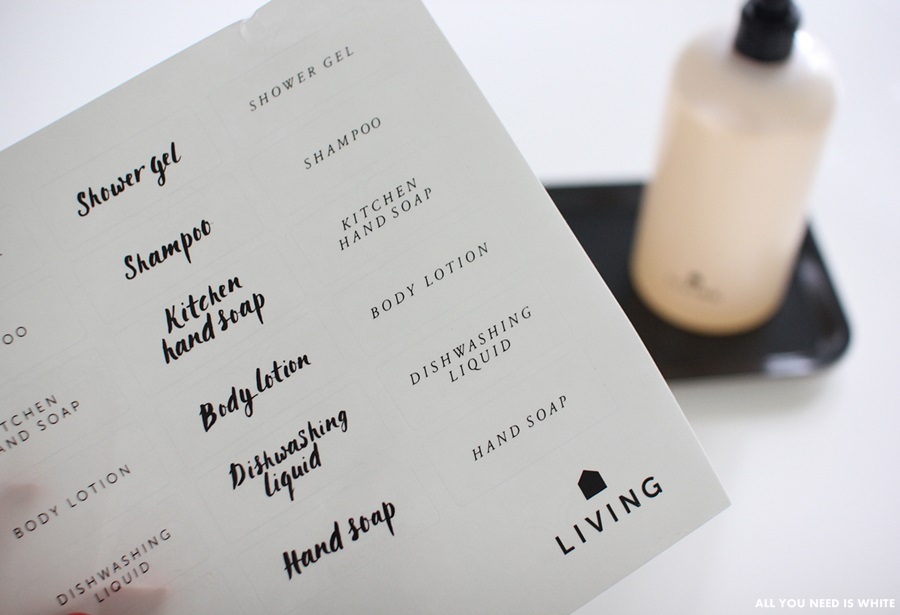 SHOWER GEL
SHAMPOO
KITCHEN
HAND SOAP
BODY LOTION
DISHWASHING
LIQUID
HAND SOAP
Shower gel
Shampoo
Kitchen
hand soap
Body lotion
Dishwashing
liquid
Hand soap
OO
TCHEN
AND SOAP
BODY LOTION
DISHWASHING
LIQUID
LIVING
ALL YOU NEED IS WHITE